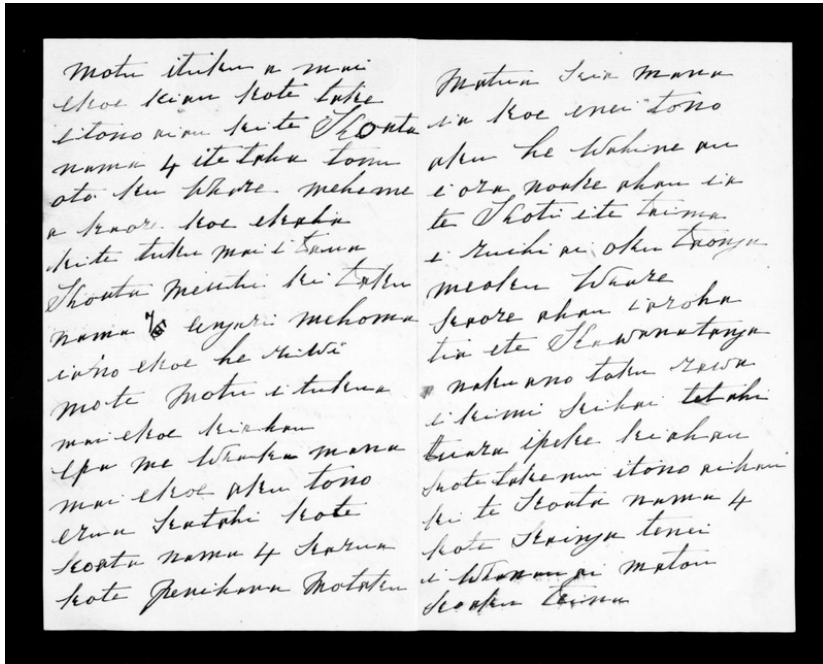 motu ituku a mai
ekoe kiau kote take
itono ai au kite Koata
nama 4 ite taha tonu
oto ku Whare meheme
a kaore koe ekaha
kite tuku mai i taua
Koata meuhi ki taku
nama 7 engari mehoma
iano ekoe he riiwi
mote motu i tukua
mai ekoe kiahau
epa me Waaka mana
mai ekoe aku tono
erua katahi kote
koata nama 4 karua
kote penihana motaku
Matua kia mana
ia koe enei tono
aku he Wahine au
i ora noake ahau ia
te Hoti ite taima
i ruihi ai oku taonga
meoku Waare
kaore ahau iaroha
tia ete Kawanatanga
naku ano taku rawa
i kimi keihai tetahi
tuara ipeke kiahau
kote take nui itono aihau
ki te Koata nama 4
kote Kainga tenei
i Whanau ai matou
koaku taina